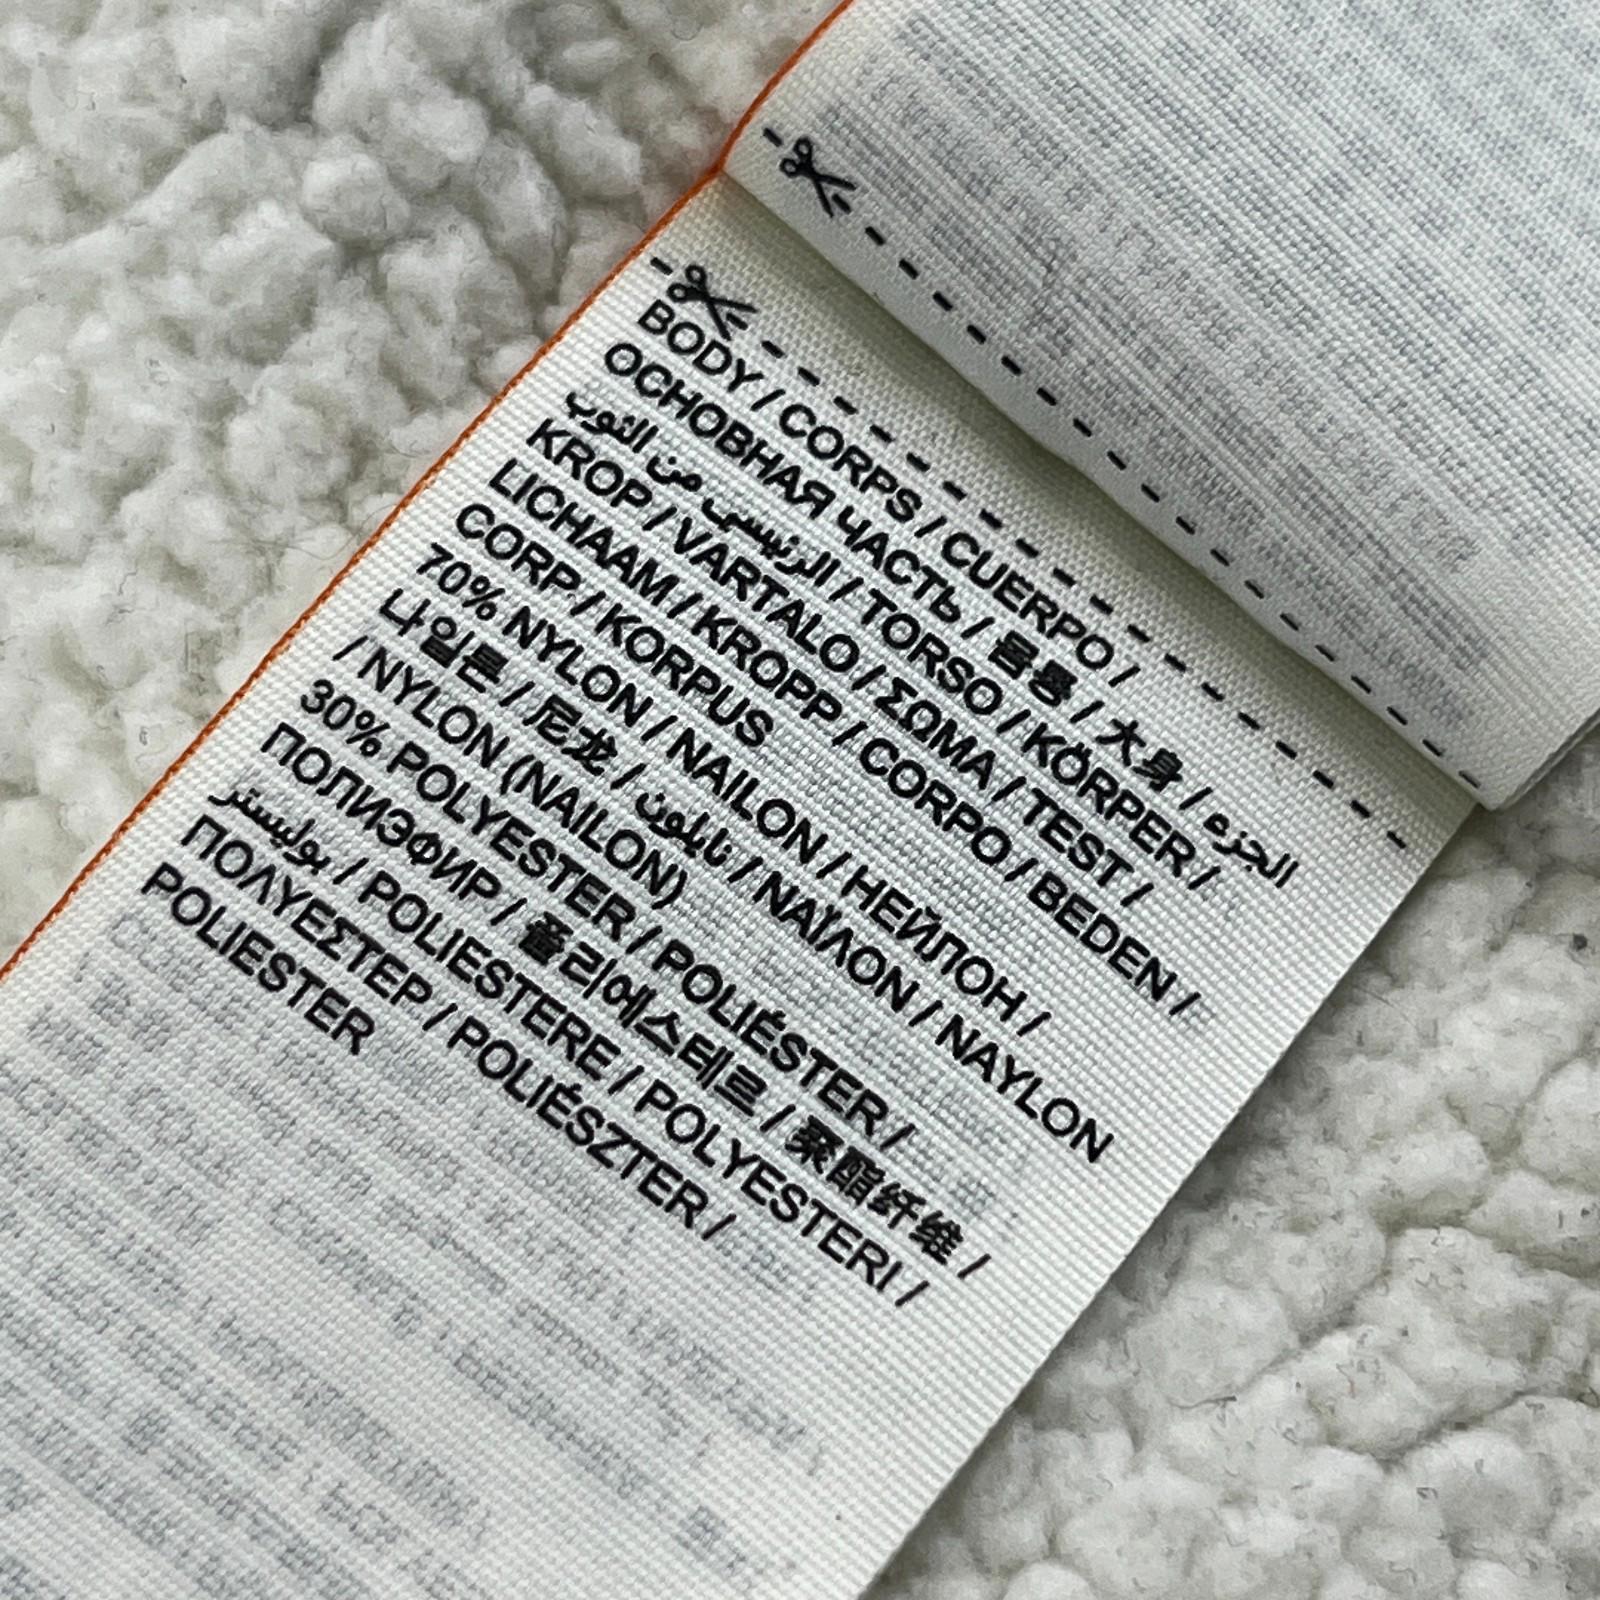 BODY / CORPS / CUERPO /
ОСНОВНАЯ ЧАСТЬ / 몸통 / 大身 / الجزء
الرئيسي من الثوب / TORSO / KÖRPER /
KROP / VARTALO / ΣΩΜΑ / TEST /
LICHAAM / KROPP / CORPO / BEDEN /
CORP / KORPUS
70% NYLON / NAILON / НЕЙЛОН /
나일론 / 尼龙 / نايلون / ΝΑΪΛΟΝ / NAYLON
/ NYLON (NAILON)
30% POLYESTER / POLIÉSTER /
ПОЛИЭФИР / 폴리에스테르 / 聚酯纤维 /
بوليستر / POLIESTERE / POLYESTERI /
ΠΟΛΥΕΣΤΕΡ / POLIÉSZTER /
POLIESTER